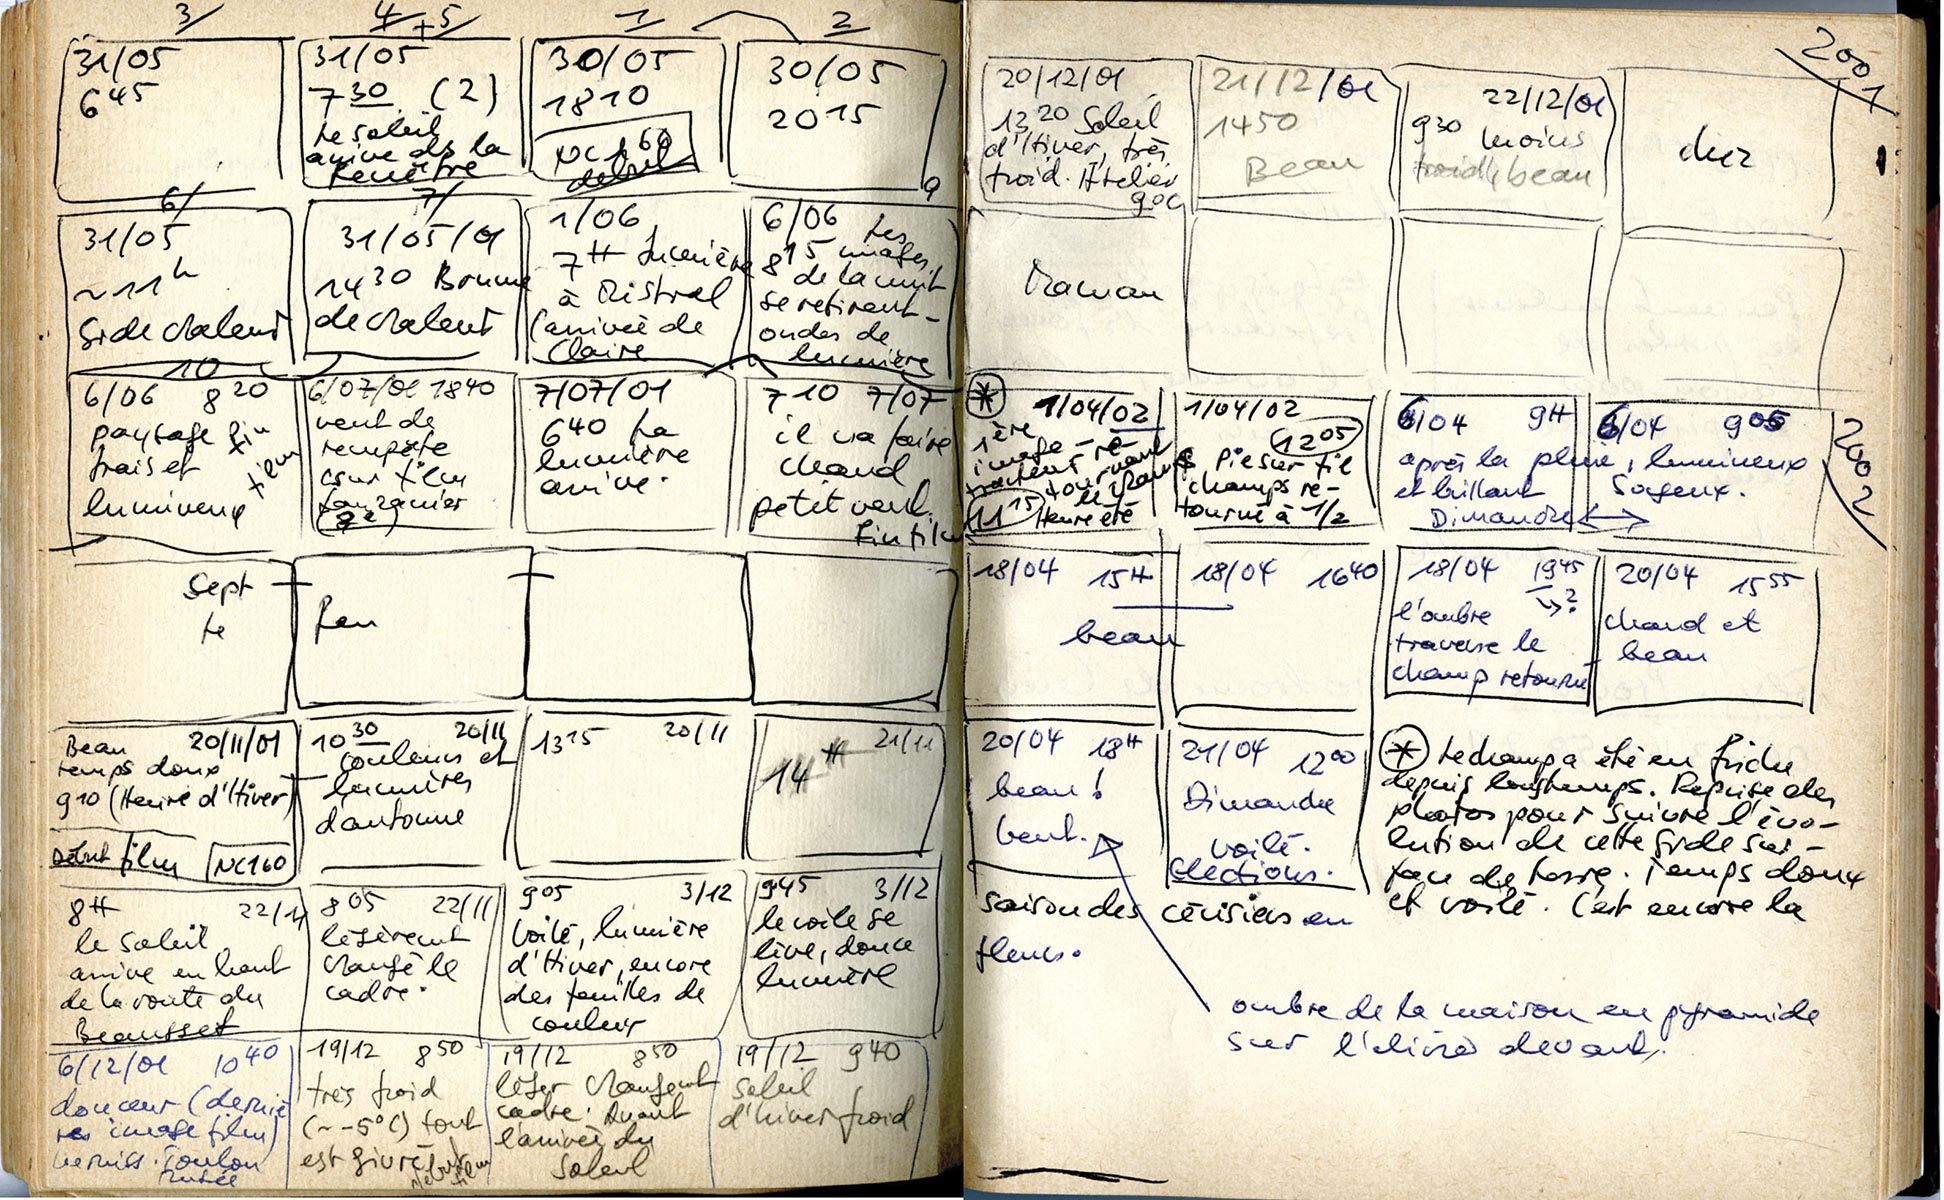 3/
4/+5/
1/
2/
31/05
6 45
31/05
7 30 (2)
le soleil
arrive ds la
fenêtre
30/05
18 10
NC 160
début
30/05
20 15
9
6/
31/05
~11 h
Gr de chaleur
7/
31/05/01
14 30 Brume
de chaleur
1/06
7H Lumière
à Mistral
(arrivée de
Claire
6/06 Les
8 15 nuages
de la nuit
se retirent -
ondes de
lumière
10
6/06 8 20
paysage fin
frais et film
lumineux
6/07/01 18 40
vent de
tempête
(sur film
7/07/01
6 40 La
lumière
arrive.
7 10 7/07
il va faire
chaud
petit vent.
Fin film
Sept
te
Beau 20/11/01
temps doux
9 10 (Heure d'Hiver)
Début film NC160
10 30 20/11
couleurs et
lumières
d'automne
13 15 20/11
14 H 21/11
8H 22/11
le soleil
arrive en haut
de la route du
Beausset
8 05 22/11
légèrement
changé le
cadre.
9 05 3/12
Voilé, lumière
d'Hiver, encore
des feuilles de
couleur
9 45 3/12
le voile se
lève, douce
lumière
6/12/01 10 40
douceur (derniè
res image film)
verniss. Toulon
Musée
19/12 8 50
très froid
(~ -5°C) tout
est givré
début film
19/12 8 50
léger changent
cadre. Avant
l'arrivée du
Soleil
19/12 9 40
Soleil
d'hiver froid
2001
20/12/01
13 20 Soleil
d'Hiver, très
froid. Atelier
9°C
21/12/01
14 50
Beau
22/12/01
9 30 moins
froid, beau
Maman
2002
* 1/04/02
1ère
image - re-
tournant
le champ
11 15 Heure été
1/04/02
12 05
Pie sur fil
champs re-
tourné à 1/2
6/04 9H
6/04 9 05
après la pluie, lumineux
et brillant
Soyeux.
Dimanche
18/04 15H
18/04 16 40
beau
18/04 19 45
?
l'ombre
traverse le
champ retourné
20/04 15 55
chaud et
beau
20/04 18H
beau!
vent.
21/04 12 00
Dimanche
voilé.
élections.
* Le champ a été en friche
depuis longtemps. Reprise des
photos pour suivre l'évo-
lution de cette grde sur-
face de terre. Temps doux
et voilé. C'est encore la
saison des cerisiers en
fleurs.
ombre de la maison en pyramide
sur l'olivier devant.